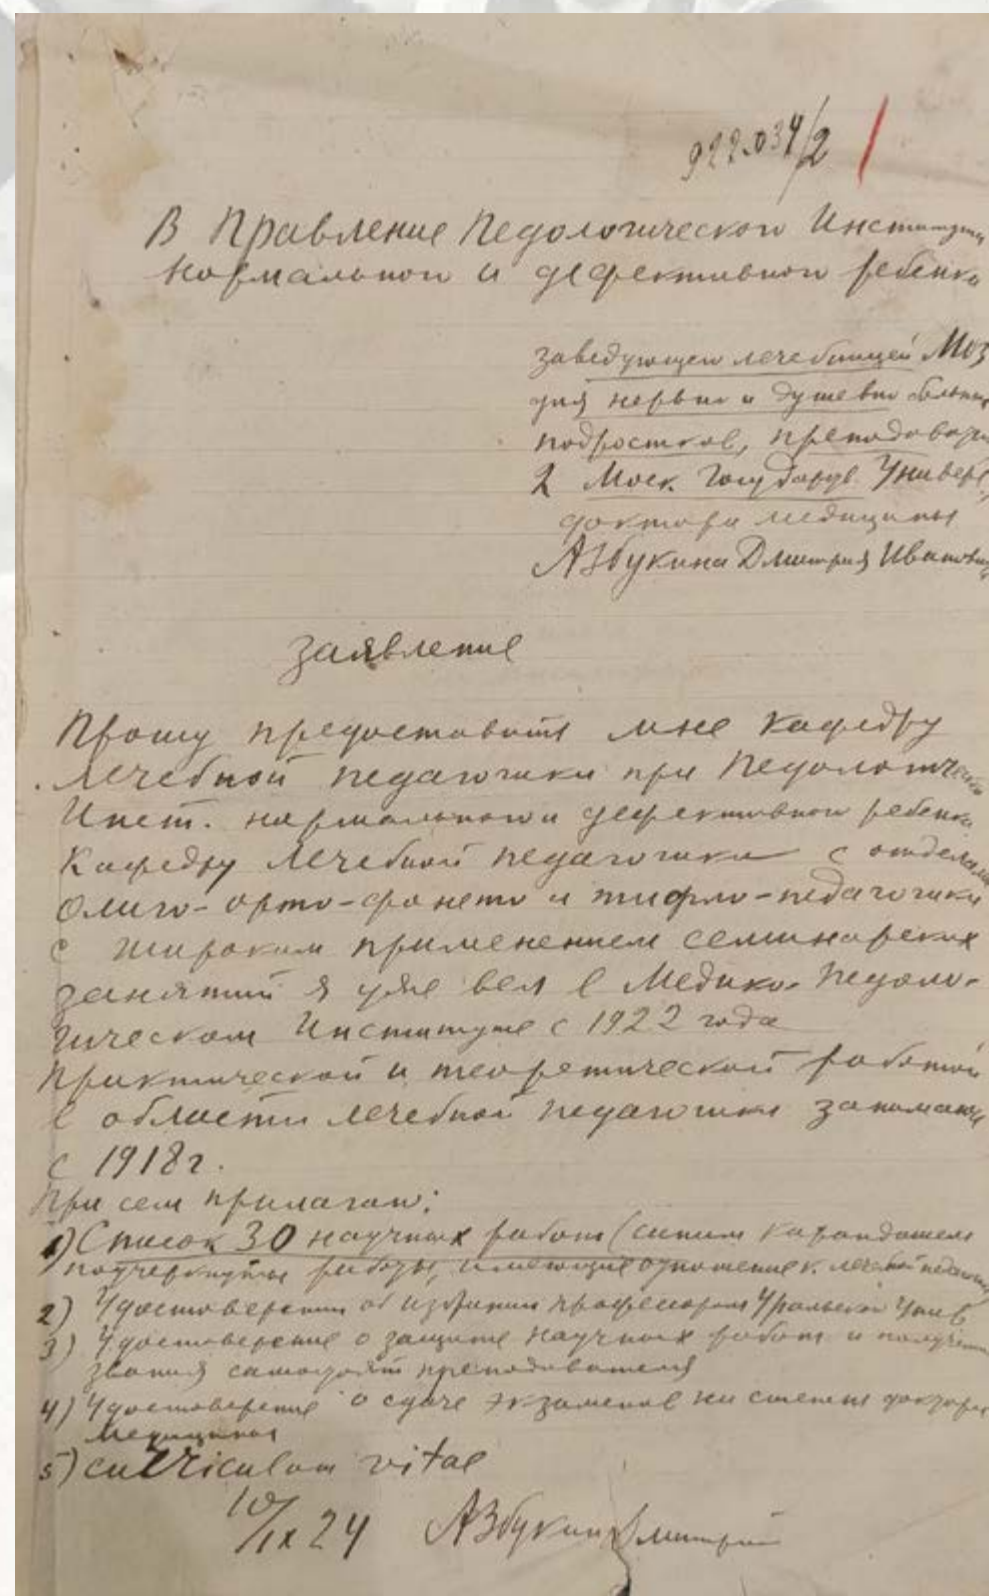 922.034/2
В Правление Педологического Института
нормального и дефективного ребенка
заведующего лечебницей Моз
для нервно и душевно больных
подростков, преподават
2 Моск. Государ. Универс.
доктора медицины
Азбукина Дмитрия Иванович
заявление
Прошу предоставить мне кафедру
лечебной педагогики при Педологическ
Инст. нормального и дефективного ребенка
Кафедру лечебной педагогики с отделами
Олиго-орто-фонето и тифло-педагогики
с широким применением семинарских
занятий я уже вел в Медико-Педоло-
гическом Институте с 1922 года
Практической и теоретической работой
в области лечебной педагогики занимаюсь
с 1918 г.
При сем прилагаю:
1) Список 30 научных работ (синим карандашем
подчеркнуты работы, имеющие отношение к лечебной педагогике
2) Удостоверение об избрании профессором Уральского Унив
3) Удостоверение о защите научных работ и получении
звания самостоят преподавателя
4) Удостоверение о сдаче экзаменов на степень доктора
медицины
5) curriculum vitae
10/IX 24 Азбукин Дмитрий